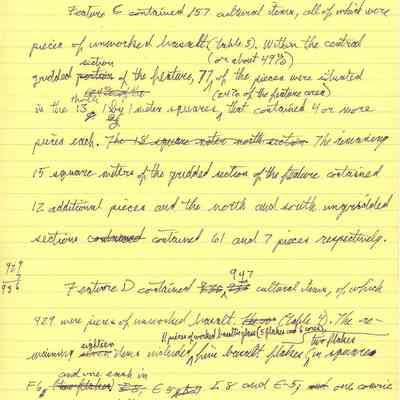 Feature C contained 157 cultural items, all of which were
pieces of unworked basalt (Table 5). Within the central
section (or about 49%)
gridded portion of the feature, 77, of the pieces were situated
(24% of the feature area)
in the 13 1 by 1 meter squares that contained 4 or more
pieces each. The 18 square meter north section The remaining
15 square meters of the gridded section of the feature contained
12 additional pieces and the north and south ungridded
sections contained contained 61 and 7 pieces respectively.
947
929
7
936
Feature D contained 936 cultural items, of which
929 were pieces of unworked basalt. (Table 4). The re-
11 pieces of worked basaltic glass (5 flakes and 6 cores)
eighteen two flakes
maining seven items included, five basalt flakes (in squares
and one each in
F6, (two flakes) E-5, I 8 and E-5), one conic